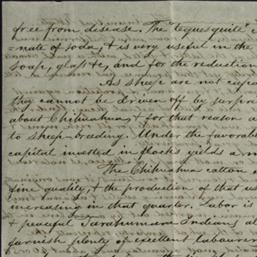 free from disease. The "Tequesquite"
mate of soda, & is very useful in the
soap, glass &c, and for the reduction
As sheep are not
they cannot be driven off by
about Chihuahua & for that reason
to sheep breeding. Under the favorable
capital invested in flocks yields a
The Chihuahua cotton
fine quality, & the production of that
increasing in that quarter. Labor is
peaceful Tarahumara Indians
furnish plenty of excellent Labourers